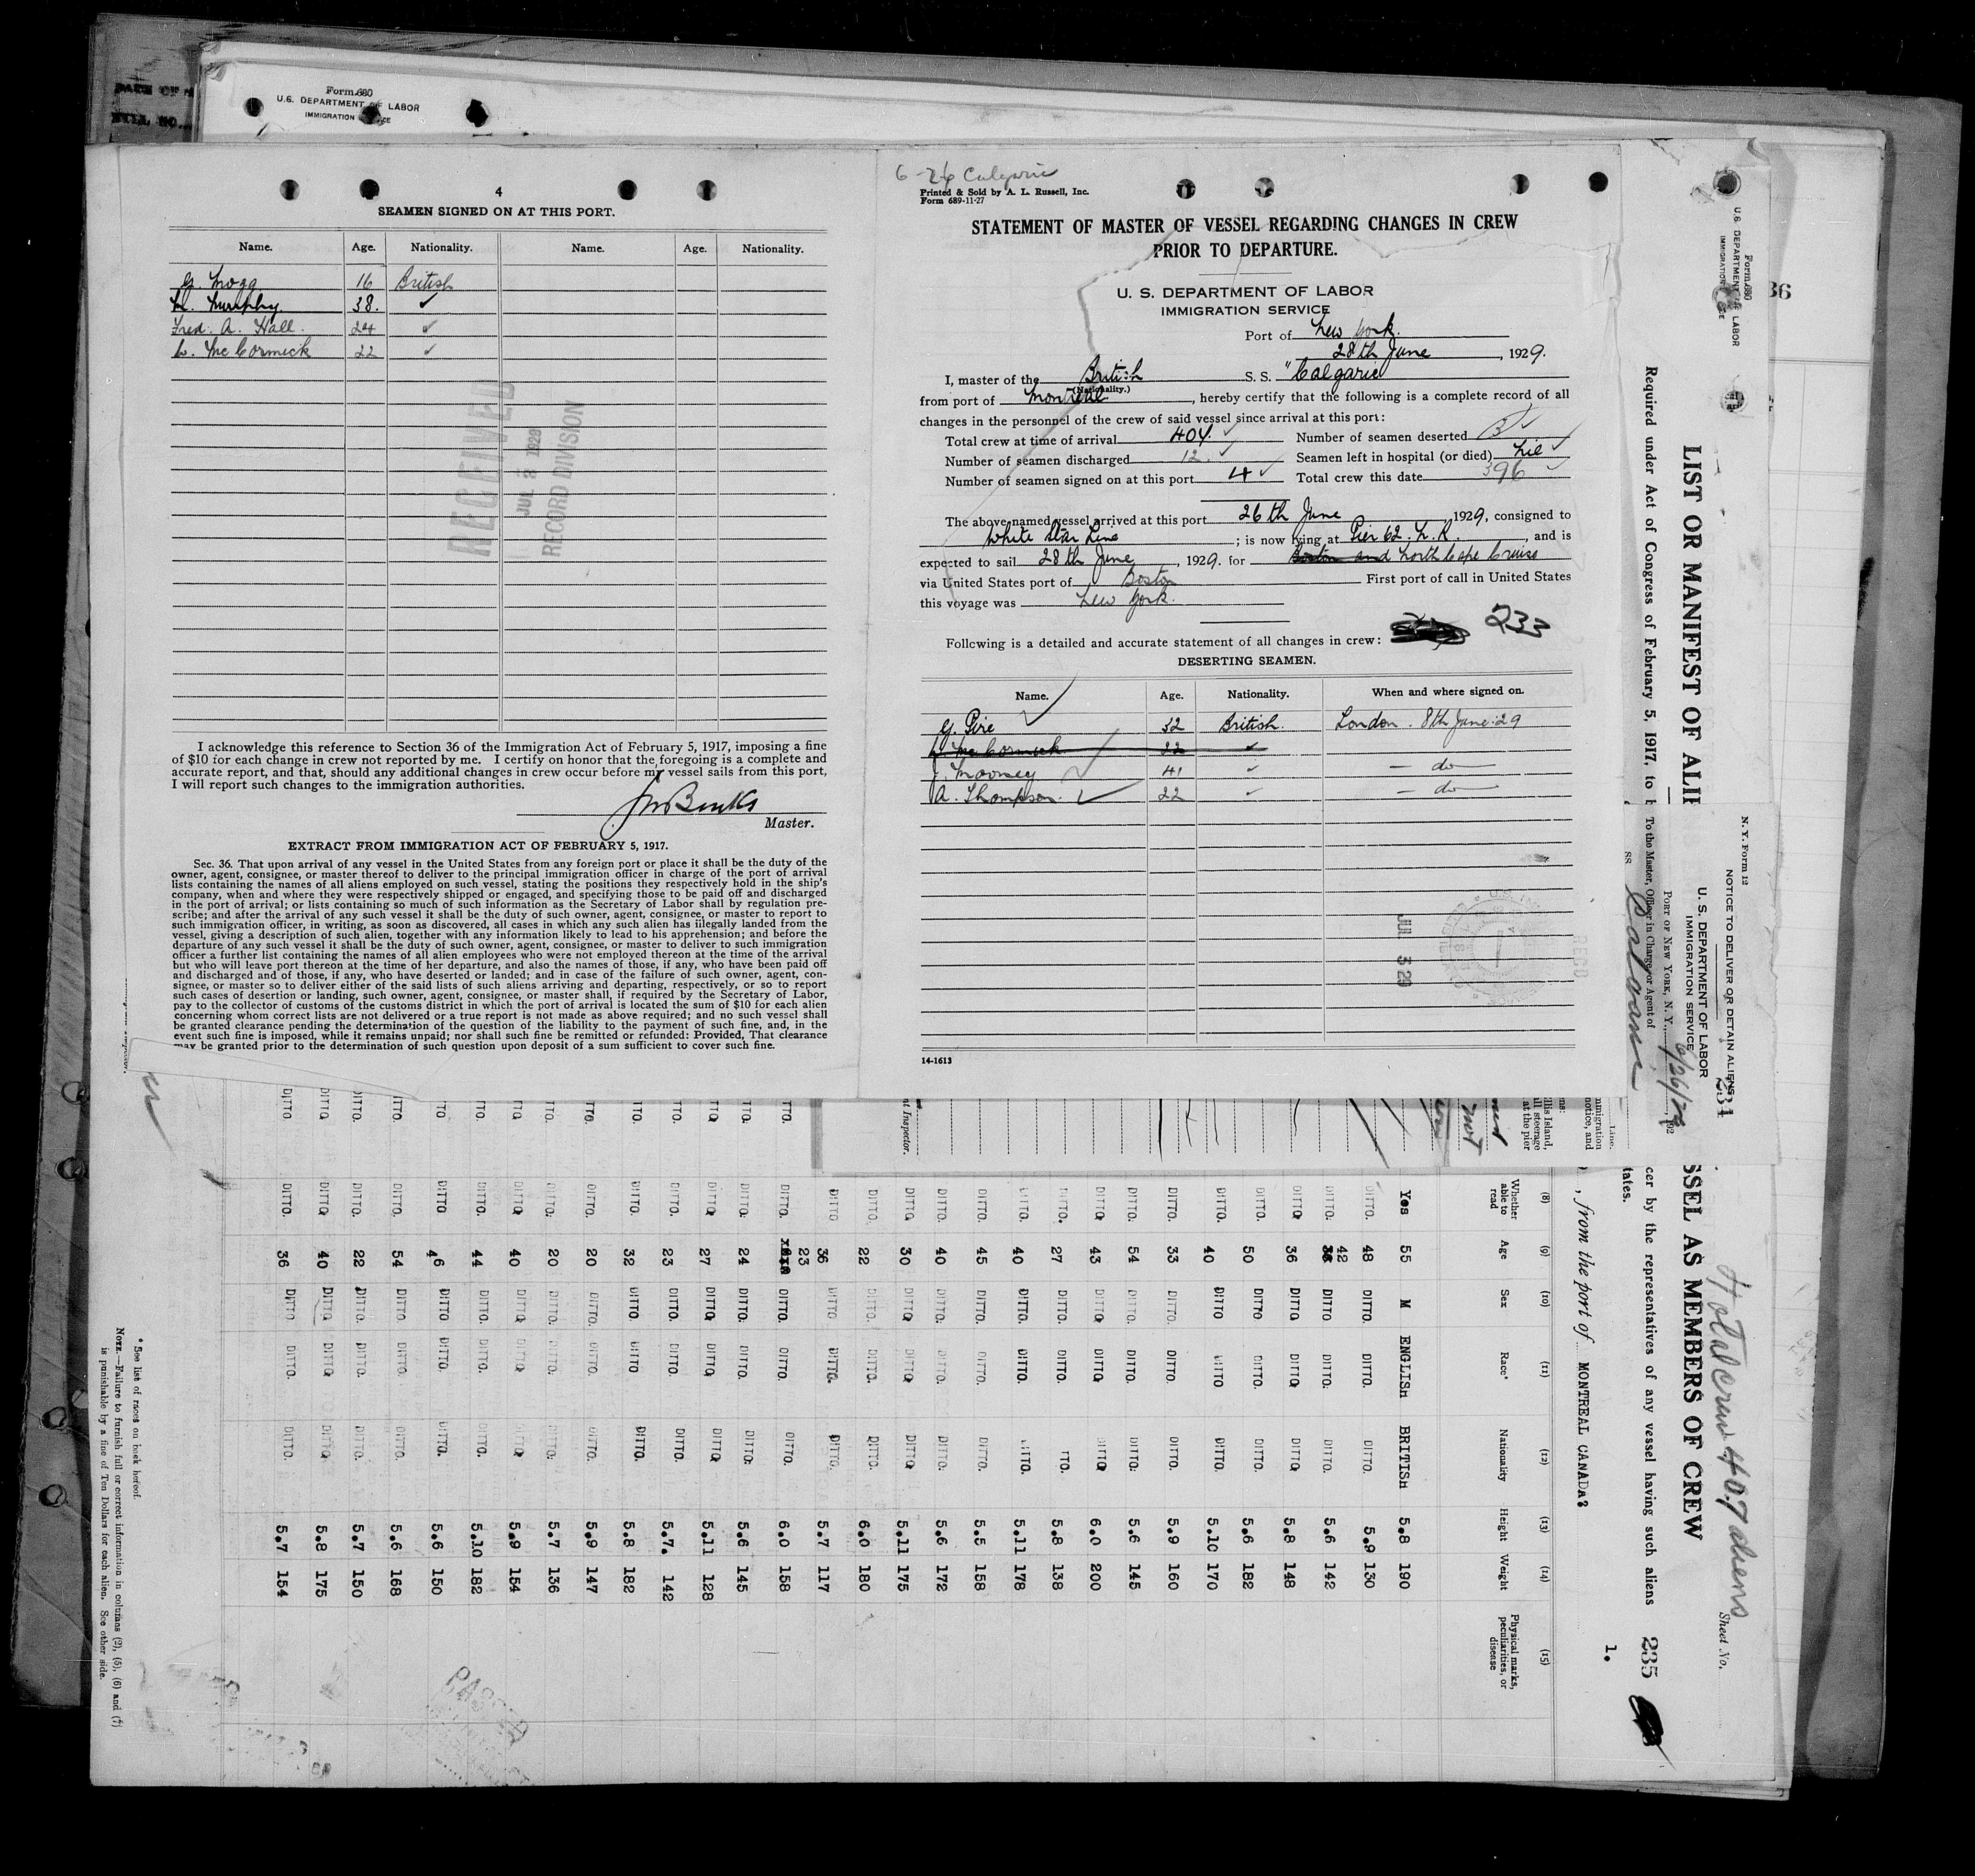 Form 680
U.S. DEPARTMENT OF LABOR
IMMIGRATION
4
SEAMEN SIGNED ON AT THIS PORT.
Name. Age. Nationality. Name. Age. Nationality.
16 British
Murphy. 38. ✓
Fred. A. Hall. 24 ✓
McCormick 22 ✓
RECEIVED
JUL 3 1929
RECORD DIVISION
I acknowledge this reference to Section 36 of the Immigration Act of February 5, 1917, imposing a fine
of $10 for each change in crew not reported by me. I certify on honor that the foregoing is a complete and
accurate report, and that, should any additional changes in crew occur before my vessel sails from this port,
I will report such changes to the immigration authorities.
Master.
EXTRACT FROM IMMIGRATION ACT OF FEBRUARY 5, 1917.
Sec. 36. That upon arrival of any vessel in the United States from any foreign port or place it shall be the duty of the
owner, agent, consignee, or master thereof to deliver to the principal immigration officer in charge of the port of arrival
lists containing the names of all aliens employed on such vessel, stating the positions they respectively hold in the ship's
company, when and where they were respectively shipped or engaged, and specifying those to be paid off and discharged
in the port of arrival; or lists containing so much of such information as the Secretary of Labor shall by regulation pre-
scribe; and after the arrival of any such vessel it shall be the duty of such owner, agent, consignee, or master to report to
such immigration officer, in writing, as soon as discovered, all cases in which any such alien has illegally landed from the
vessel, giving a description of such alien, together with any information likely to lead to his apprehension; and before the
departure of any such vessel it shall be the duty of such owner, agent, consignee, or master to deliver to such immigration
officer a further list containing the names of all alien employees who were not employed thereon at the time of the arrival
but who will leave port thereon at the time of her departure, and also the names of those, if any, who have been paid off
and discharged and of those, if any, who have deserted or landed; and in case of the failure of such owner, agent, con-
signee, or master so to deliver either of the said lists of such aliens arriving and departing, respectively, or so to report
such cases of desertion or landing, such owner, agent, consignee, or master shall, if required by the Secretary of Labor,
pay to the collector of customs of the customs district in which the port of arrival is located the sum of $10 for each alien
concerning whom correct lists are not delivered or a true report is not made as above required; and no such vessel shall
be granted clearance pending the determination of the question of the liability to the payment of such fine, and, in the
event such fine is imposed, while it remains unpaid; nor shall such fine be remitted or refunded: Provided, That clearance
may be granted prior to the determination of such question upon deposit of a sum sufficient to cover such fine.
6-26 Calgaric
Printed & Sold by A. L. Russell, Inc.
Form 689-11-27
STATEMENT OF MASTER OF VESSEL REGARDING CHANGES IN CREW
PRIOR TO DEPARTURE.
U. S. DEPARTMENT OF LABOR
IMMIGRATION SERVICE
Port of New York.
28th June, 1929.
I, master of the British S. S. "Calgaric
(Nationality.)
from port of Montreal, hereby certify that the following is a complete record of all
changes in the personnel of the crew of said vessel since arrival at this port:
Total crew at time of arrival 407. ✓ Number of seamen deserted 3 ✓
Number of seamen discharged 12. ✓ Seamen left in hospital (or died) Nil ✓
Number of seamen signed on at this port 4 ✓ Total crew this date 396 ✓
The above-named vessel arrived at this port 26th June 1929, consigned to
White Star Line; is now lying at Pier 62. N. R., and is
expected to sail 28th June, 1929. for Boston and North Cape Cruise
via United States port of Boston First port of call in United States
this voyage was New York.
233
Following is a detailed and accurate statement of all changes in crew:
DESERTING SEAMEN.
Name. Age. Nationality. When and where signed on.
G. Pire ✓ 32 British. London. 8th June. 29
McCormick 22 ✓
Mooney ✓ 41 ✓ — do —
A. Thompson. ✓ 22 ✓ — do —
JUL 3 29
14-1613
Form 680
U.S. DEPARTMENT OF LABOR
36
LIST OR MANIFEST OF ALI
Required under Act of Congress of February 5, 1917, to
N. Y. Form 12
NOTICE TO DELIVER OR DETAIN ALIENS
234
U. S. DEPARTMENT OF LABOR
IMMIGRATION SERVICE
PORT OF NEW YORK, N. Y., 6/26/29, 192
To the Master, Officer in Charge or Agent of
SS Calgaric
Line.
nt Inspector.
Total crew 407 aliens
Sheet No.
SSEL AS MEMBERS OF CREW
cer by the representatives of any vessel having such aliens 235
tates.
1.
, from the port of MONTREAL CANADA?
(8) (9) (10) (11) (12) (13) (14) (15)
Whether able to read Age Sex Race* Nationality Height Weight Physical marks, peculiarities, or disease
Yes 55 M ENGLISH BRITISH 5.8 190
DITTO. 48 DITTO. DITTO. DITTO. 5.9 130
DITTO. 42 DITTO. DITTO. DITTO. 5.6 142
DITTO 36 DITTO DITTO DITTO 5.8 148
DITTO. 50 DITTO DITTO. DITTO. 5.6 182
DITTO. 40 DITTO DITTO DITTO. 5.10 170
DITTO. 33 DITTO. DITTO. DITTO. 5.9 160
DITTO. 54 DITTO. DITTO. DITTO. 5.6 145
DITTO 43 DITTO DITTO DITTO 6.0 200
DITTO. 27 DITTO. DITTO. TTO. 5.8 138
DITTO. 40 DITTO. DITTO. DITTO. 5.11 178
DITTO. 45 DITTO. DITTO. DITTO. 5.5 158
DITTO. 40 DITTO. DITTO. DITTO. 5.6 172
DITTO 30 DITTO DITTO DITTO 5.11 175
DITTO. 22 DITTO. DITTO. DITTO. 6.0 180
DITTO 36 DITTO. DITTO. DITTO. 5.7 117
DITTO. 23 DITTO. DITTO. DITTO. 6.0 158
DITTO. 24 DITTO. DITTO. DITTO. 5.6 145
DITTO 27 DITTO DITTO DITTO 5.11 128
DITTO. 23 DITTO. DITTO. DITTO. 5.7. 142
DITTO. 32 DITTO DITTO DITTO. 5.8 182
DITTO. 20 DITTO. DITTO. DITTO. 5.9 147
DITTO. 20 DITTO. DITTO. DITTO. 5.7 136
DITTO 40 DITTO DITTO DITTO 5.9 154
DITTO. 44 DITTO. DITTO. DITTO. 5.10 182
DITTO 46 DITTO DITTO. DITTO. 5.6 150
DITTO. 54 DITTO. DITTO. DITTO. 5.6 168
DITTO. 22 DITTO. DITTO. DITTO. 5.7 150
DITTO 40 DITTO DITTO DITTO 5.8 175
DITTO. 36 DITTO DITTO. DITTO. 5.7 154
* See list of races on back hereof.
NOTE.—Failure to furnish full or correct information in columns (2), (5), (6) and (7)
is punishable by a fine of Ten Dollars for each alien. See other side.